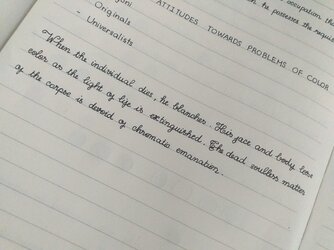 occupation, the
he possesses the requi
Originals
- Universalists
ATTITUDES TOWARDS PROBLEMS OF COLOR
- When the individual dies, he blanches. His face and body lose
color as the light of life is extinguished. The dead soulless matter
of the corpse is devoid of chromatic emanation.